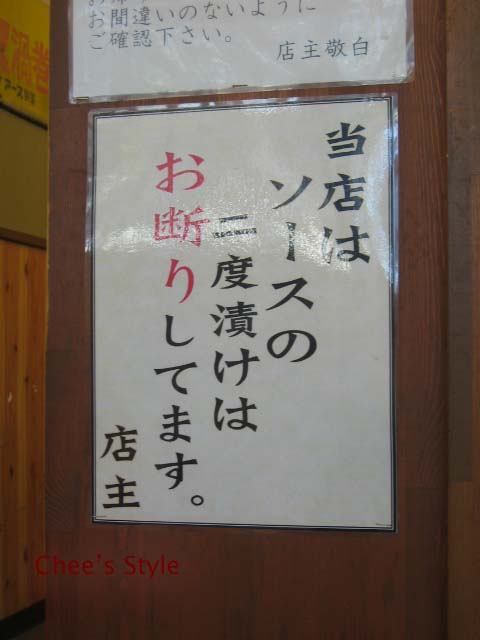 お間違いのないように
ご確認下さい。
店主敬白
当店は
ソースの
二度漬けは
お断りしてます。
店主
渦巻
アース製薬
Chee's Style